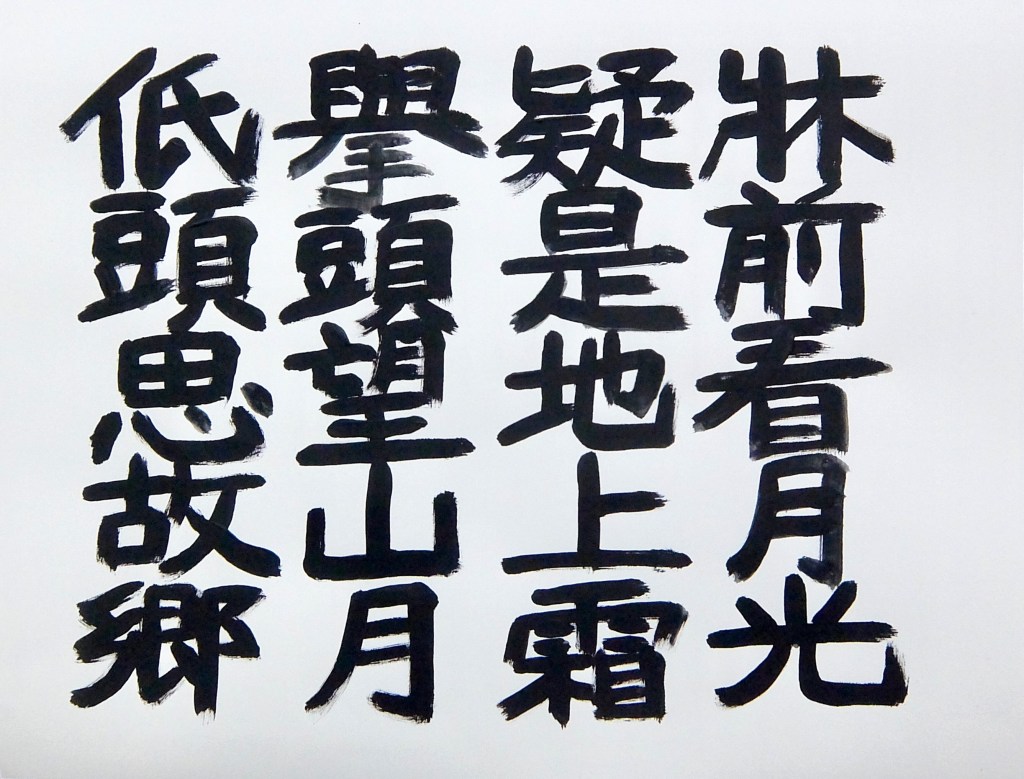 牀前看月光
疑是地上霜
擧頭望山月
低頭思故鄉